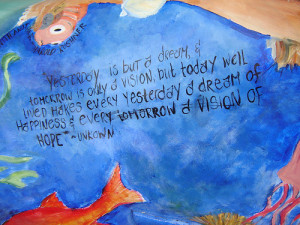 "Yesterday is but a dream, &
tomorrow is only a VISION, but today well
lived makes every yesterday a dream of
Happiness & every tomorrow a VISION of
HOPE" ~UNKOWN